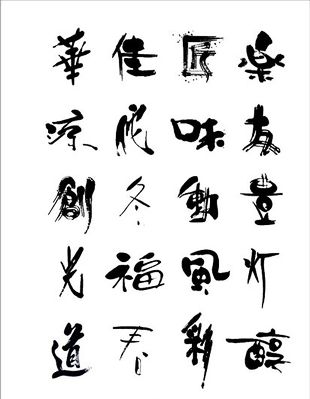 華 佳 匠 楽
涼 味 友
創 冬 動 豊
光 福 風 灯
道 春 彩 醇